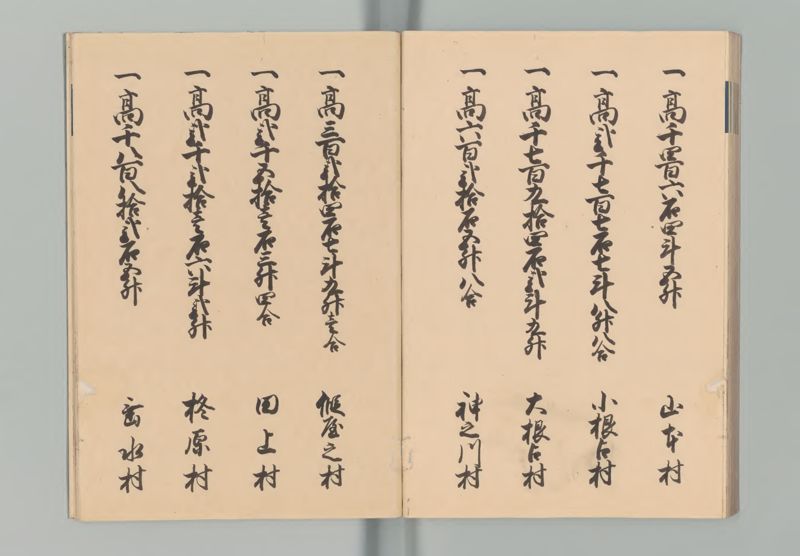 一高千四百六石四斗五升 山本村
一高弐千七百七石七斗八升八合 小根占村
一高千七百九拾四石弐斗九升 大根占村
一高六百弐拾石五升八合 神之川村
一高三百弐拾四石七斗九升壱合 之村
一高弐千五拾壱石三升四合 田上村
一高弐千弐拾壱石六斗弐升 柊原村
一高千八百八拾弐石五升 水村